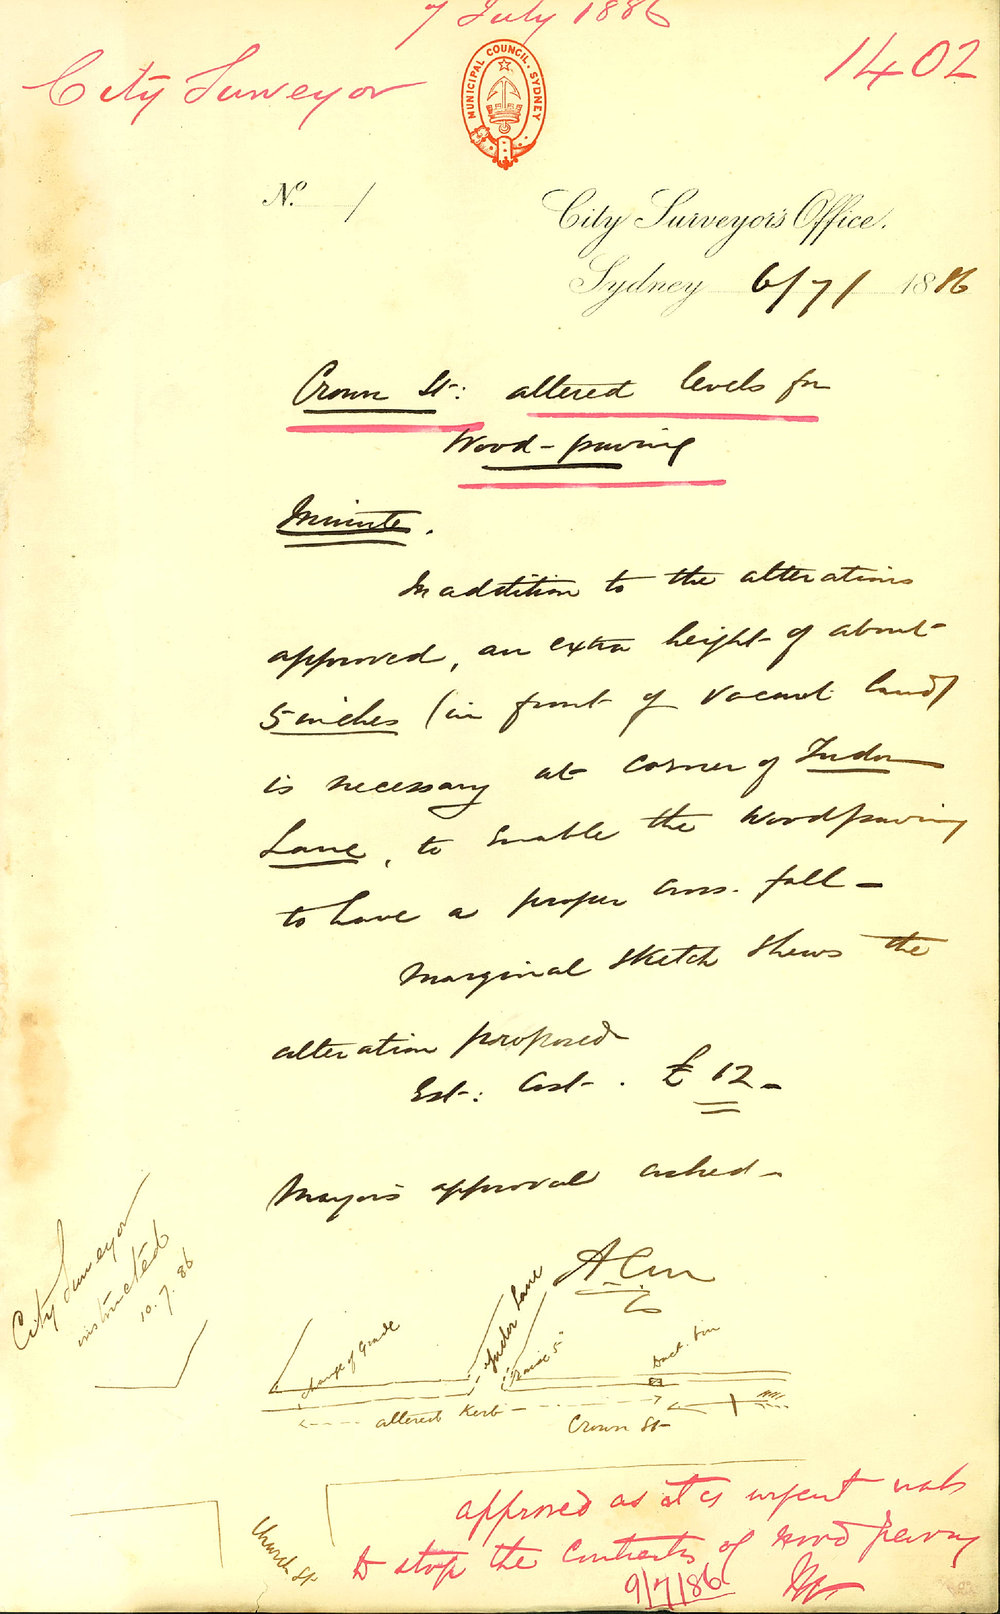 7 July 1886
City Surveyor
1402
MUNICIPAL COUNCIL. SYDNEY
No. 1
City Surveyor's Office.
Sydney 6/7/ 1886
Crown St: altered levels for
Wood-paving
Minute.
In addition to the alterations
approved, an extra height of about
5 inches (in front of vacant land)
is necessary at corner of Tudor
Lane, to enable the Woodpaving
to have a proper cross-fall -
Marginal sketch shews the
alteration proposed
Est: Cost. £12 -
Mayor's approval asked -
City Surveyor
instructed
10.7.86
change of Grade
Tudor Lane
Raise 5"
altered Kerb
Crown St
Church St
approved as it is urgent
to stop the contracts of wood paving
9/7/86